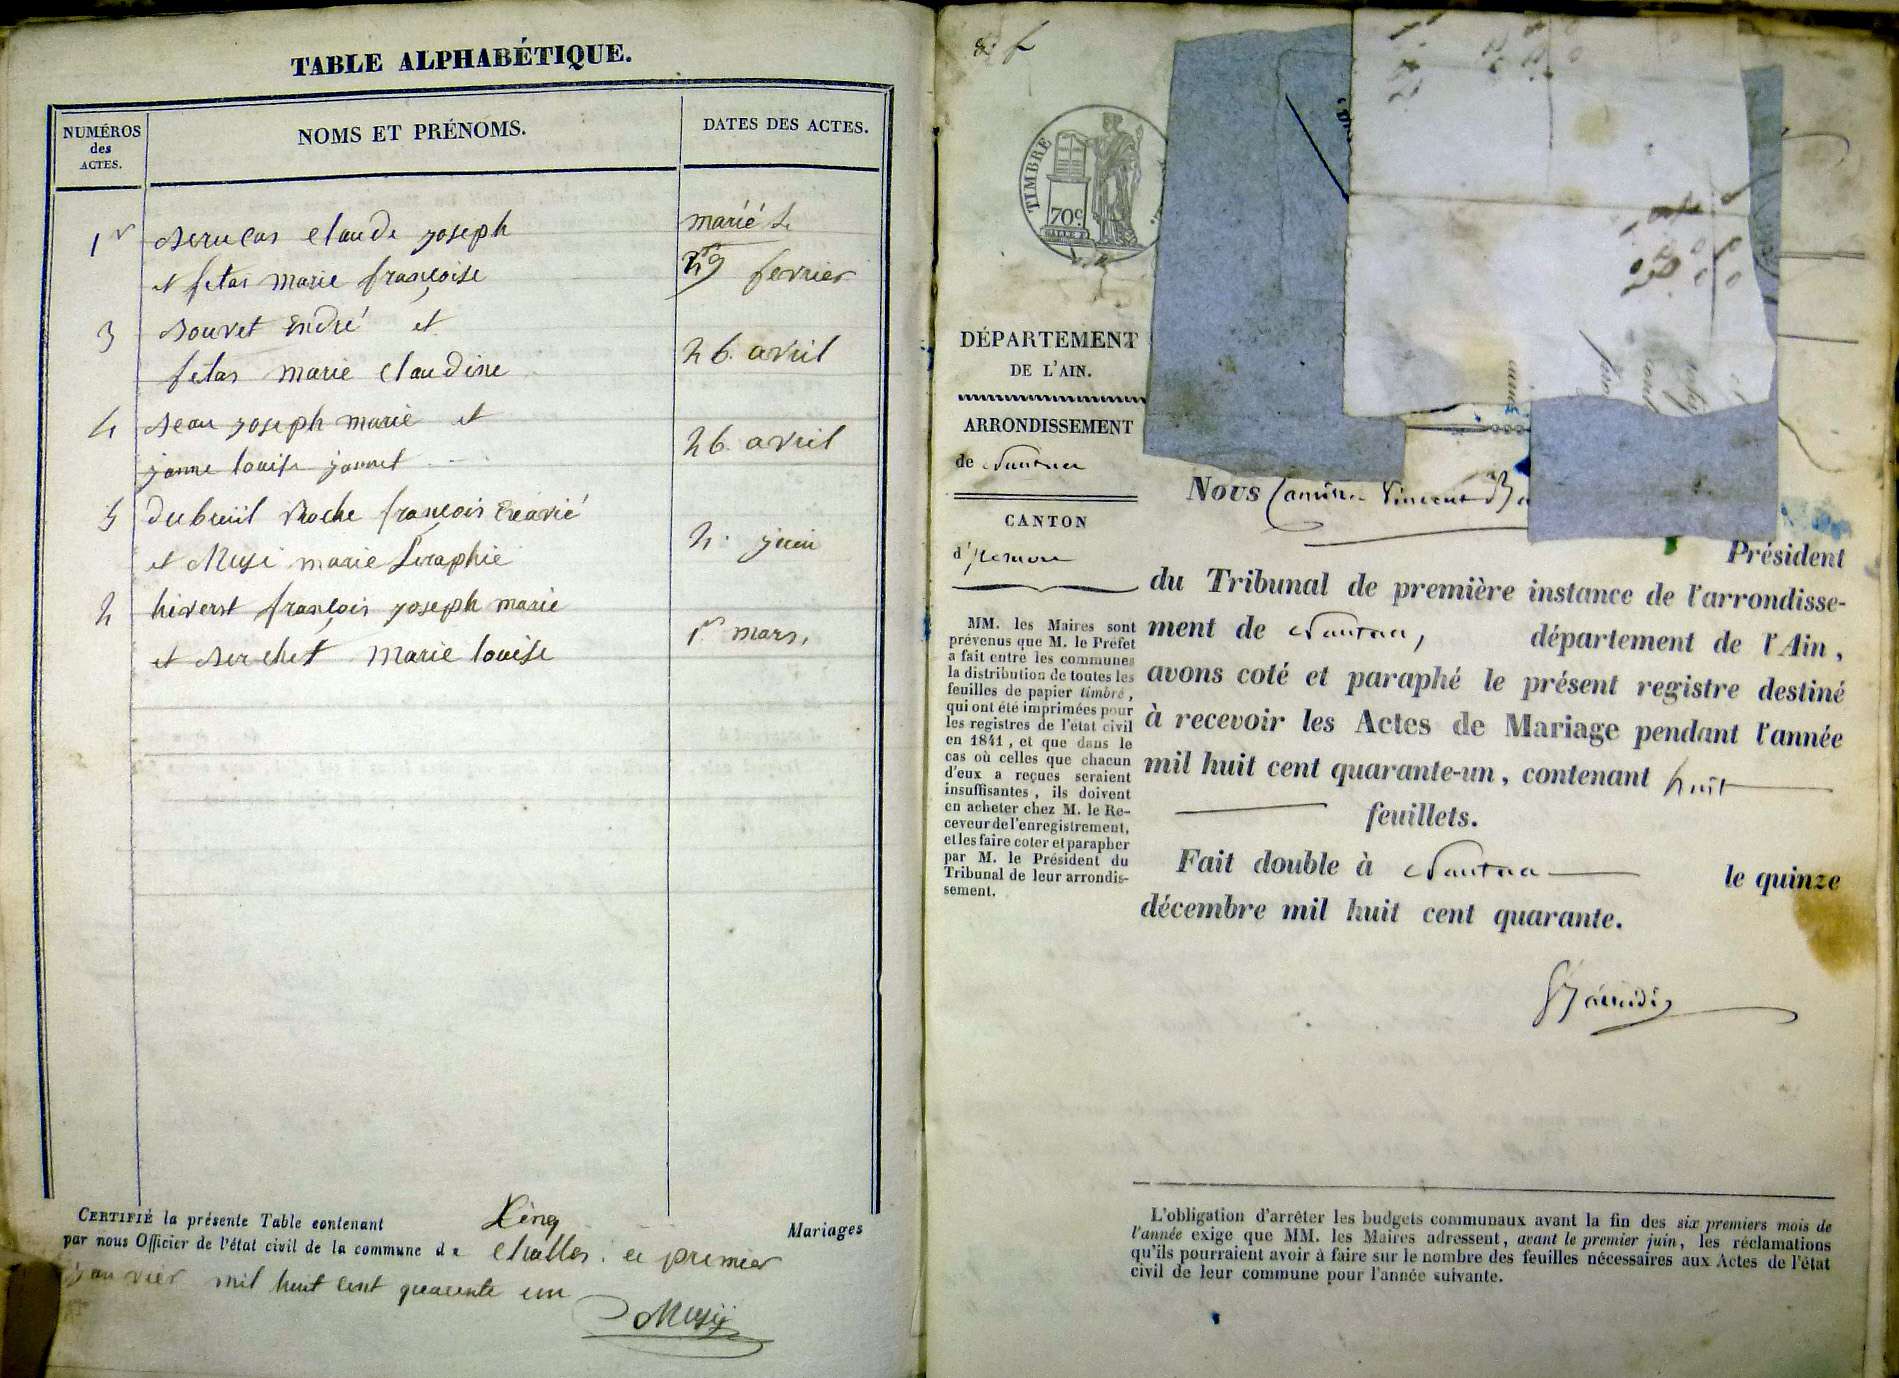 TABLE ALPHABÉTIQUE.
NUMÉROS
des
ACTES.
NOMS ET PRÉNOMS.
DATES DES ACTES.
1r claude joseph
marié le
et fetas marie françoise
fevrier
3 Bouvet André et
fetas marie claudine
26. avril
4 joseph marie et
louise
26. avril
5 dubreüil Roche françois
et Musi marie Seraphie
2. juin
2 françois joseph marie
et marie louise
1er mars.
CERTIFIÉ la présente Table contenant Cinq Mariages
par nous Officier de l'état civil de la commune de challes. ce premier
janvier mil huit cent quarente un
Musÿ
TIMBRE
70c.
DÉPARTEMENT
DE L'AIN.
ARRONDISSEMENT
de Nantua
CANTON
d'
MM. les Maires sont
prévenus que M. le Préfet
a fait entre les communes
la distribution de toutes les
feuilles de papier timbré,
qui ont été imprimées pour
les registres de l'état civil
en 1841, et que dans le
cas où celles que chacun
d'eux a reçues seraient
insuffisantes, ils doivent
en acheter chez M. le Re-
ceveur de l'enregistrement,
et les faire coter et parapher
par M. le Président du
Tribunal de leur arrondis-
sement.
Nous Vincent
Président
du Tribunal de première instance de l'arrondisse-
ment de Nantua, département de l'Ain,
avons coté et paraphé le présent registre destiné
à recevoir les Actes de Mariage pendant l'année
mil huit cent quarante-un, contenant huit
feuillets.
Fait double à Nantua le quinze
décembre mil huit cent quarante.
L'obligation d'arrêter les budgets communaux avant la fin des six premiers mois de
l'année exige que MM. les Maires adressent, avant le premier juin, les réclamations
qu'ils pourraient avoir à faire sur le nombre des feuilles nécessaires aux Actes de l'état
civil de leur commune pour l'année suivante.